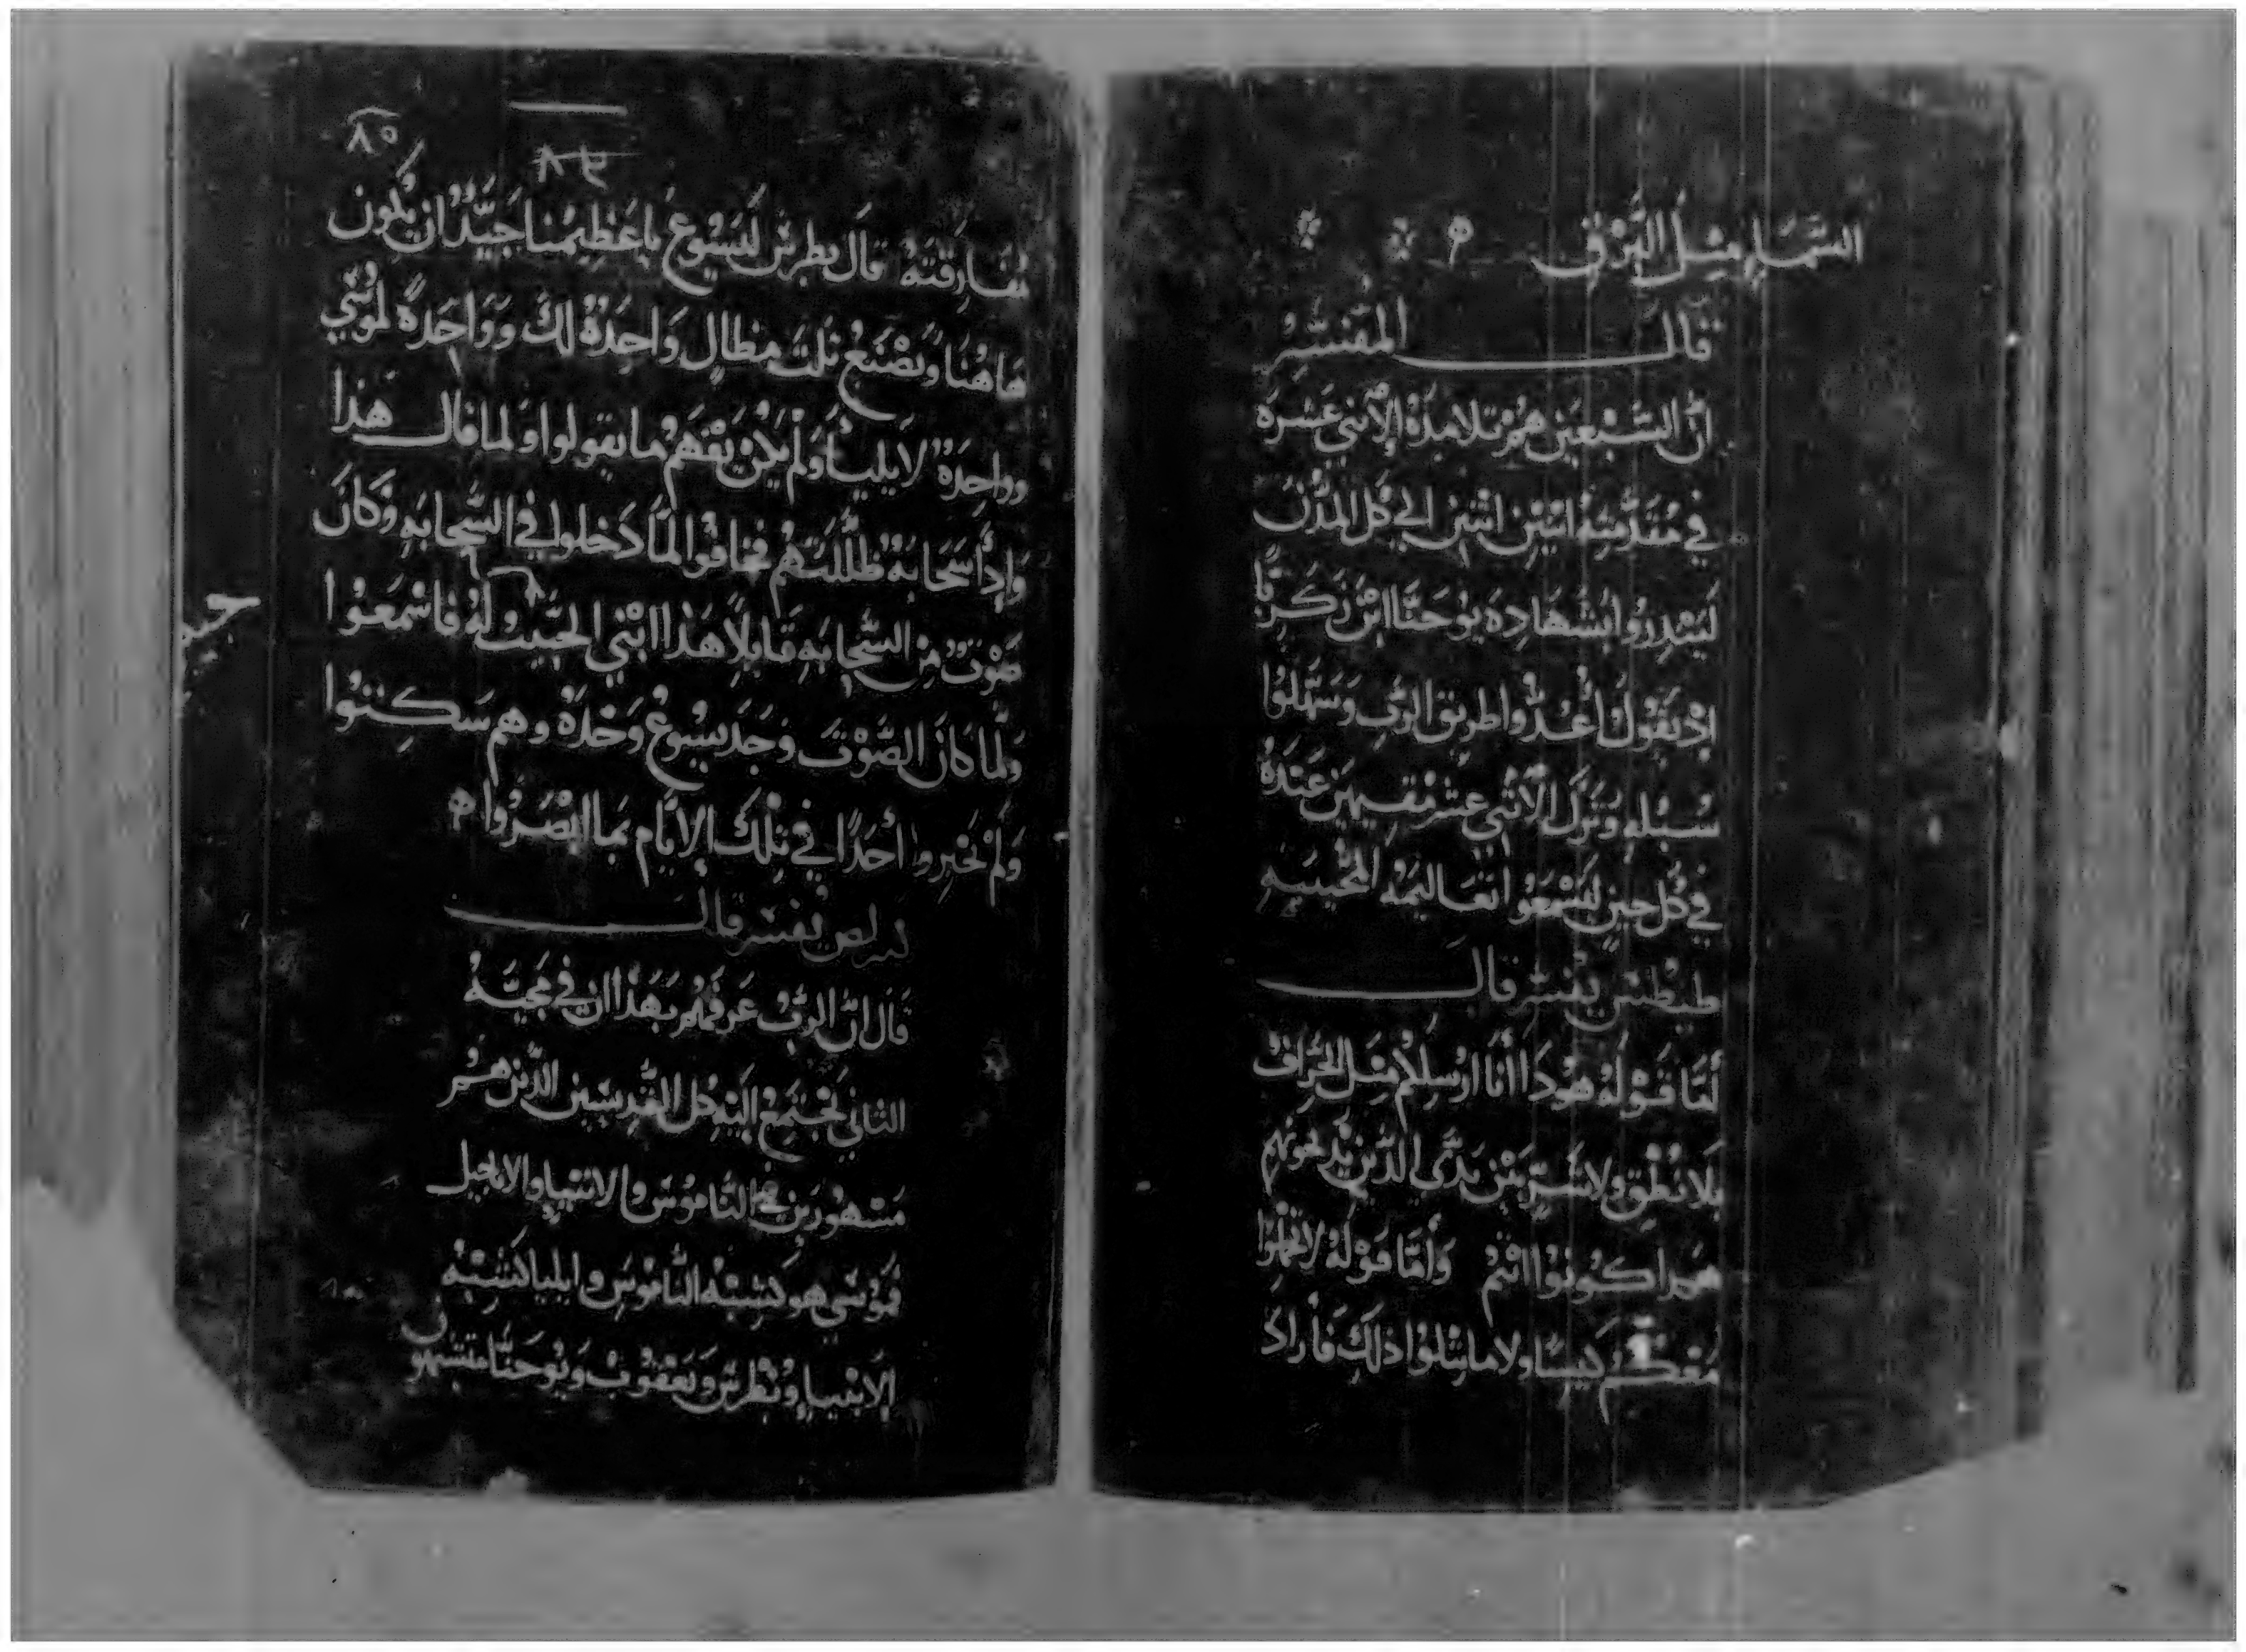 السَّمَاءِ مِثلُ البَرْقِ
قال المفَسِّر
انَّ السَّبْعِين هُمْ تلامذةُ الإثني عَشَره
في مُقدَّمتِهُ اثنين اثنين الي كل المُدُن
ليُنذِرُوا بشهادِه يوحَنَّا ابن زكريا
اذ يَقولُ أعُدُّوا طريق الرَّب وسَهِّلُوا
سُبُله وتَرَك الاثني عشر مُقيمين عندهُ
في كل حينٍ ليَسْمَعُوا تعاليمهُ المُحييه
طيطس يفسر قال
أمَّا قَوْلهُ هودَا أنا ارسلكم مِثل الخِرافْ
بلا نُطْقٍ ولا شَرٍّ بَيْن يَدَي الذين يذبحونهم
هكدا كونوا انتم وأمَّا قَوْلهُ لا تحملوا
مَعَكُم كيسًا ولا ما شاكلوا ذلك فأراد
٨٥
٨٤
مُفَارَقَتهُ قال بطرس ليَسُوع يا عَظِيمُنا جَيِّدُ ان يكون
هَاهُنَا ونَصْنَعُ ثلث مظالٍ وَاحِدَةُ لك وَوَاحِدَةً لموُسَي
وواحِدَةٌ لايليا وَلَم يَكُنْ يَفْهَمُ ما يقولوا ولما قال هذا
وَإِدَا سَحَابَهُ ظَلَّلَتهُم فخافوا لمَّا دَخلوا في السَّحابَهِ وَكانَ
صَوْتٌ مِن السَّحابَهِ قَايلاً هَذا ابْني الحَبيبُ ولَهُ فاسْمَعُوا
وَلمَّا كانَ الصَّوْت وَجَد يسُوعُ وَحْدَهُ وهم سَكِتوُا
وَلم يخبِروا أحَدًا في تِلكَ الايَّام بما ابْصَرُوا
يفسر قال
قال انَّ الربُ عَرفهم بهذا ان في مجيَّهُ
الثاني تجتَمِعُ اليهِ كل القديسين الذين هم
مَشهُورين في النَّامُوسَ والانبياءِ والانجيل
فمُوسَي هو كَشبهُ النَّامُوسَ وايليا كشبهُ
الانبياءِ وبُطرس ويَعقوب ويُوحَنَّا متشبهون